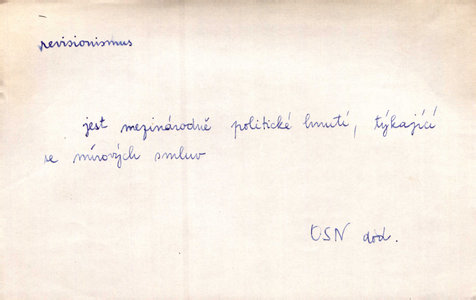 revisionismus
jest mezinárodně politické hnutí, týkající
se mírových smluv
OSN dod.